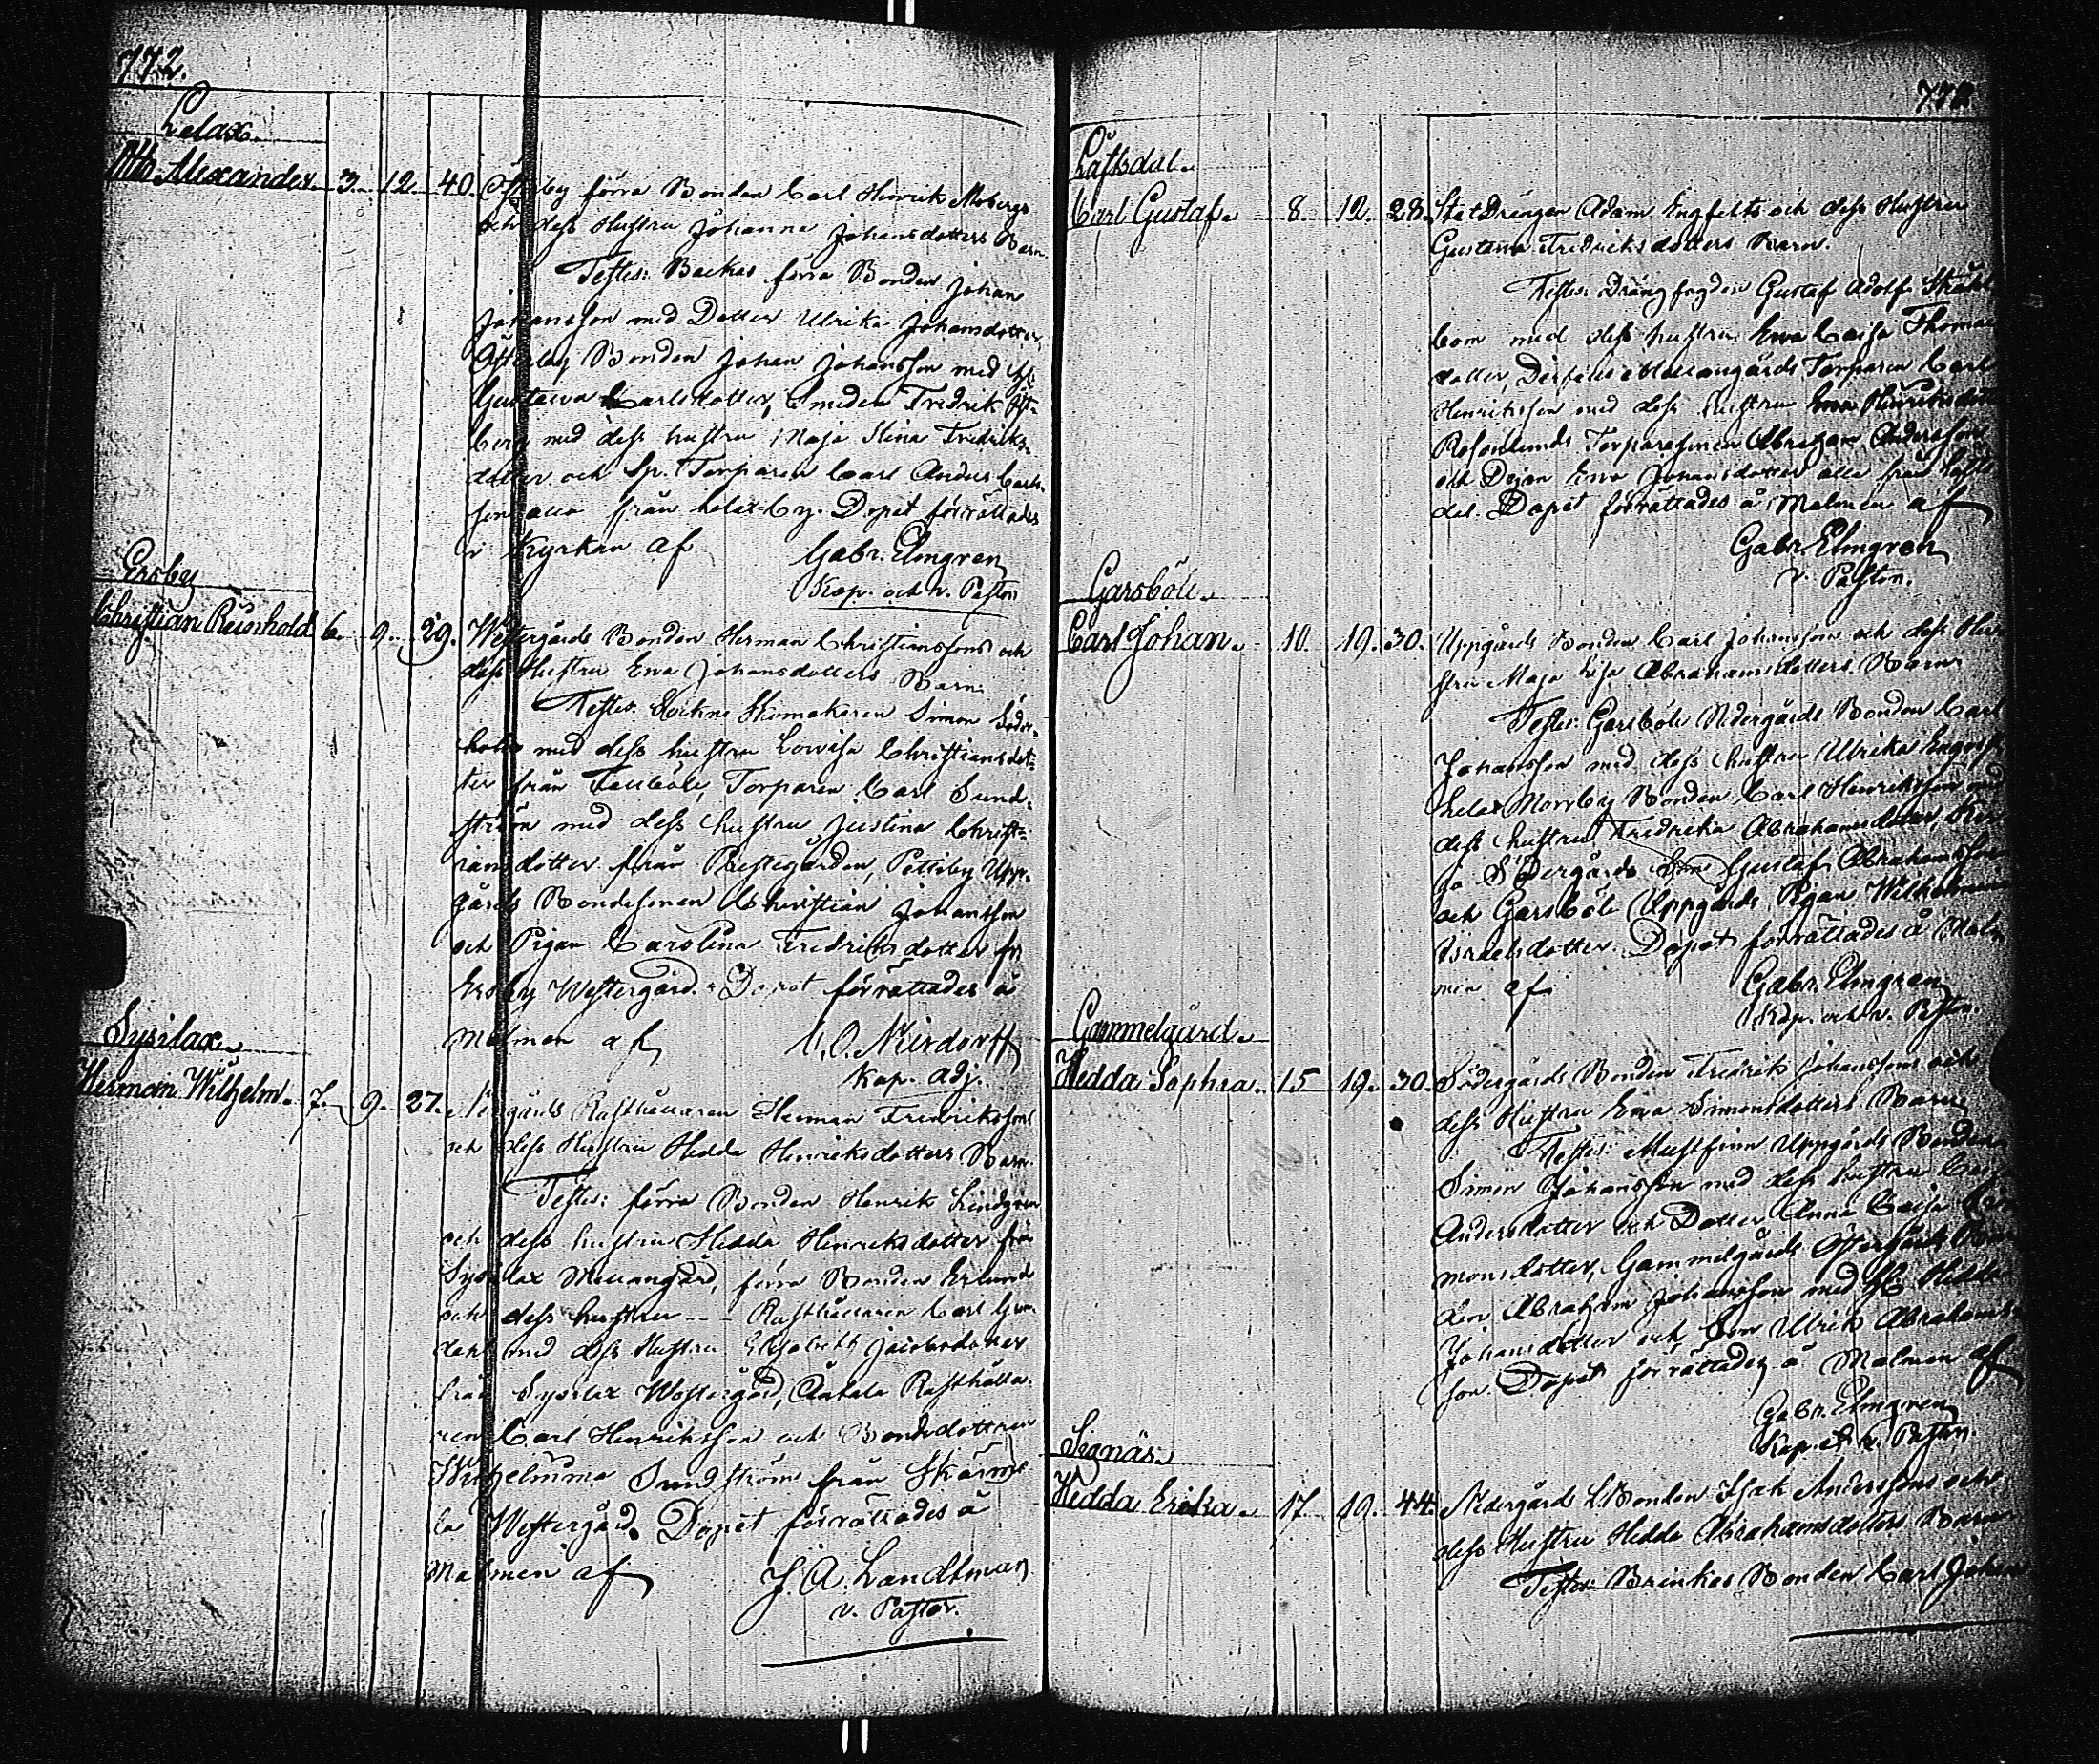 772.
Lelax.
Otto Alexander. 3. 12. 40. Österby förra Bonden Carl Henrik Mobergs
och dess Hustru Johanna Johansdotters Barn.
Testes: Backas förra Bonden Johan
Johansson med Dotter Ulrika Johansdotter,
Österby Bonden Johan Johansson med H:
Gustava Carlsdotter, Smeden Fredrik
berg med dess hustru Maja Stina Fredriks-
dotter och Sp. Torparen Carl Anders Carls-
son alla från Lelax by. Dopet förrättades
i Kyrkan af Gabr. Elmgren
Kap. och v. Pastor
Ersby
Christian Reinhold 6. 9. 29. Westergårds Bonden Herman Christianssons och
dess Hustru Eva Johansdotters Barn.
Testes: Sockne Skomakaren Simon Söder-
holm med dess hustru Lovisa Christiansdot-
ter från Fallböle, Torparen Carl Sund-
ström med dess hustru Justina Christ-
iansdotter från Prestegården, Pettiby Upp-
gårds Bondesonen Christian Johansson
och Pigan Carolina Fredriksdotter fr.
Ersby Westergård. Dopet förrättades å
Malmen af
Kap. adj.
Sysilax.
Herman Wilhelm. 7. 9. 27. Nergårds Rusthållaren Herman Fredrikssons
och dess Hustru Hedda Henriksdotters Barn.
Testes: förra Bonden Henrik Lindgren
och dess hustru Hedda Henriksdotter från
Sysilax Mellangård, förra Bonden Erlund
och dess hustru -- Rusthållaren Carl
dahl med dess Hustru Elisabeth Jacobsdotter
från Sysilax Westergård, Rusthålla-
ren Carl Henriksson och Bondedottren
Wilhelmina Sundström från
la Westergård. Dopet förrättades å
Malmen af J. A. Landtman
v. Pastor.
773
Laftsdal.
Carl Gustaf. 8. 12. 28. StatDrängen Adam Engfelts och dess Hustru
Gustava Fredriksdotters Barn.
Testes: Drängfogden Gustaf Adolf
bom med dess hustru Eva Caisa Thomas
dotter, Mellangårds Torparen Carl
Henriksson med dess hustru Eva Henriksdotter
Rosenlunds Torparesonen Abraham Andersson
och Dejan Eva Johansdotter alla från Lafts
dal. Dopet förrättades å Malmen af
Gabr. Elmgren
v. Pastor.
Garsböle.
Carl Johan. 10. 19. 30. Uppgårds Bonden Carl Johansson och dess Hu-
stru Maja Lisa Abrahamsdotters Barn.
Testes: Garsböle Nedergårds Bonden Carl
Johansson med dess hustru Ulrika
Lelax Norrby Bonden Carl Henriksson med
dess hustru Fredrika Abrahamsdotter,
Södergårds Son Gustaf Abrahamsson
och Garsböle Uppgårds Pigan Wilhelmina
Israelsdotter. Dopet förrättades å Mal-
men af Gabr. Elmgren
Kap. och v. Pastor.
Gammelgård.
Hedda Sophia. 15 19. 30. Södergårds Bonden Fredrik Johanssons och
dess Hustru Eva Simonsdotters Barn.
Testes: Mustfinn Uppgårds Bonden
Simon Johansson med dess hustru
Andersdotter och Dotter Anna Caisa Si-
monsdotter, Gammelgårds Östergårds Bon-
den Abraham Johansson med H: Hedda
Johansdotter och Son Ulrik Abrahams-
son. Dopet förrättades å Malmen af
Gabr. Elmgren
Kap. och v. Pastor.
Signäs.
Hedda Erika. 17. 19. 44. Nedergårds Bonden Isak Anderssons och
dess Hustru Hedda Abrahamsdotters Barn
Testes: Brinkas Bonden Carl Johan